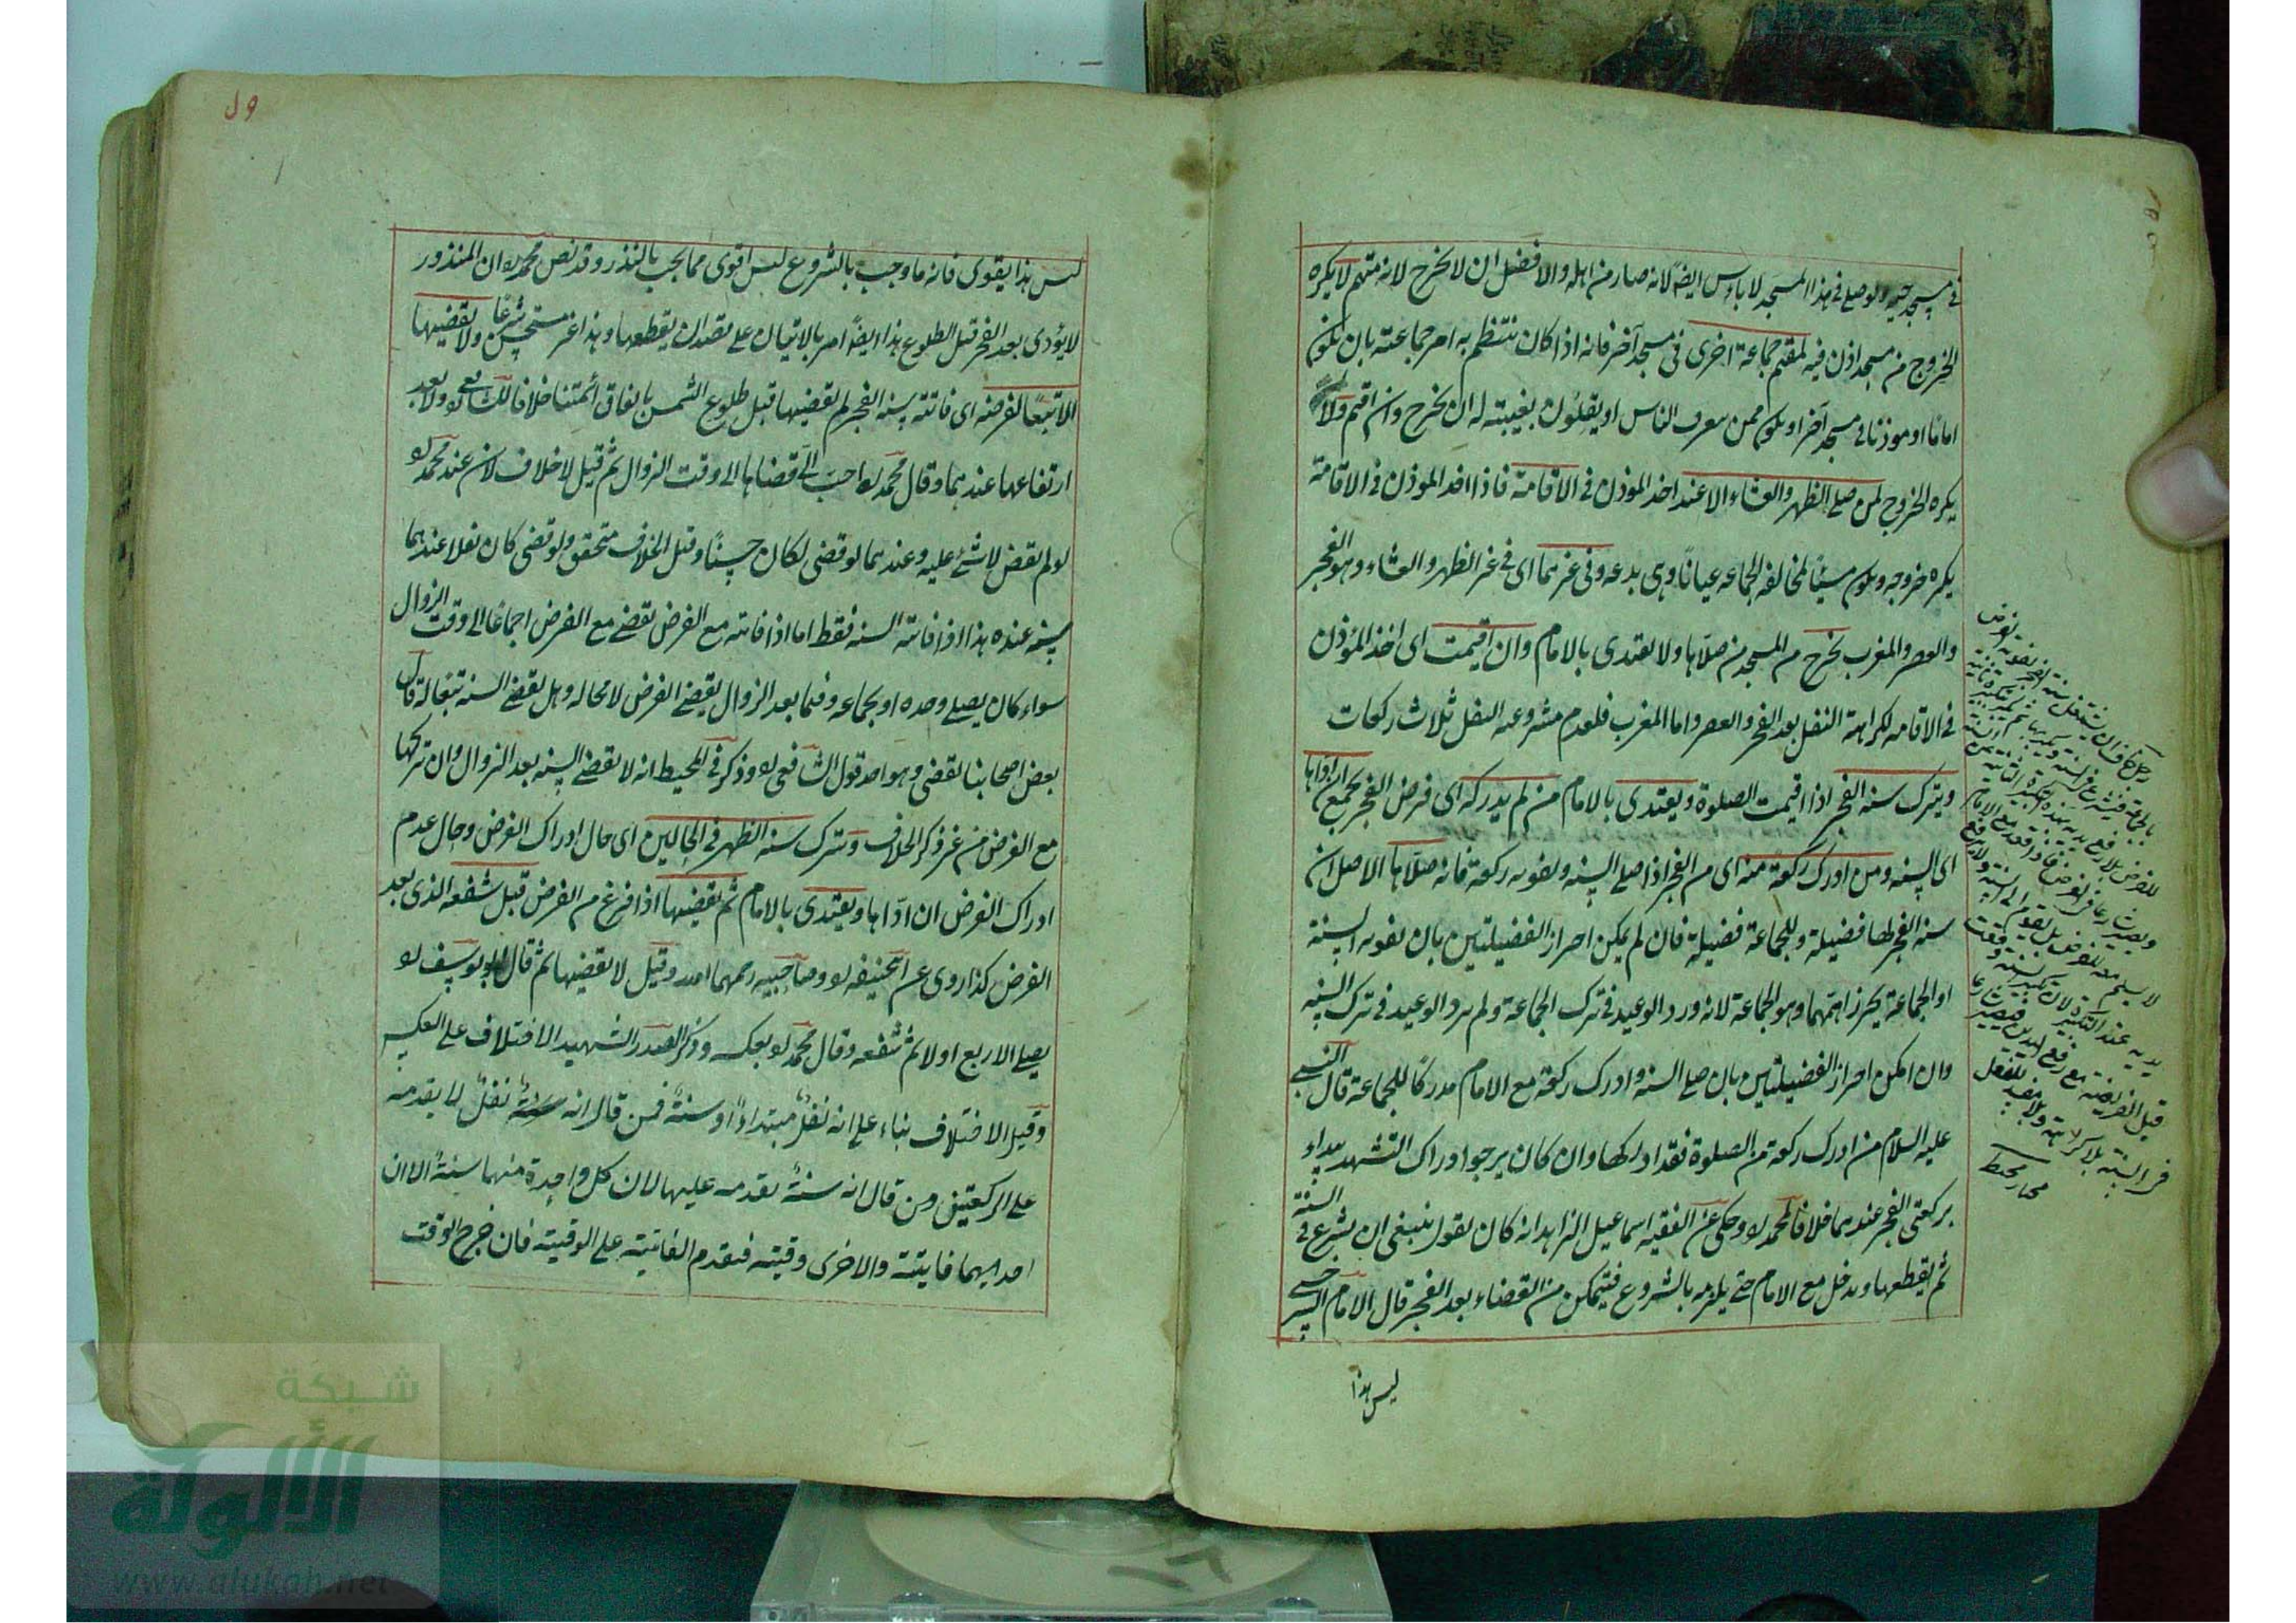 في مسجد حيه ولو صلى في هذا المسجد لا باس ايضا لانه صار من اهله والافضل ان لا يخرج لانه متهم لا يكره
الخروج من مسجد اذن فيه لمقيم جماعة اخرى في مسجد آخر فانه اذا كان ينتظم به امر جماعته بان يكون
اماما او موذنا في مسجد آخر او يكون ممن يعرف الناس او يقلون بغيبته له ان يخرج وان اقيم ولا
يكره الخروج لمن صلى الظهر والعشاء الا عند اخذ الموذن في الاقامة فاذا اخذ الموذن في الاقامة
يكره خروجه ويكون مسيئا لمخالفه الجماعه عيانا وهي بدعه وفي غيرهما اى في غير الظهر والعشاء وهو الفجر
والعصر والمغرب يخرج من المسجد من صلاها ولا يقتدى بالامام وان اقيمت اى اخذ المؤذن
في الاقامه لكراهة النفل بعد الفجر والعصر واما المغرب فلعدم مشروعيه النفل ثلاث ركعات
ويترك سنه الفجر اذا اقيمت الصلوة ويقتدى بالامام من لم يدركه اى فرض الفجر بجمع ان اداها
اى السنه ومن ادرك ركعة منه اى من الفجر اذا صلى السنه ويفوته ركعة فانه صلاها الاصل ان
سنه الفجر لها فضيلة وللجماعة فضيلة فان لم يمكن احراز الفضيلتين بان يفوته السنة
او الجماعة يحرز اهمهما وهو الجماعة لانه ورد الوعيد في ترك الجماعة ولم يرد الوعيد في ترك السنه
وان امكن احراز الفضيلتين بان صلى السنه وادرك ركعة مع الامام مدركا للجماعة قال النبي
عليه السلام من ادرك ركعة من الصلوة فقد ادركها وان كان يرجوا دراك التشهد يبداء
بركعتي الفجر عندهما خلافا لمحمد ره وحكى عن الفقيه اسماعيل الزاهد انه كان يقول ينبغي ان يشرع في السنة
ثم يقطعها ويدخل مع الامام حتى يلزمه بالشروع فيتمكن من القضاء بعد الفجر قال الامام السرخسي
ليس هذا
بلا كراهة
محيط
ليس هذا يقوى فانه ما وجب بالشروع ليس اقوى مما يجب بالنذر وقد نص محمد ره ان المنذور
لا يؤدى بعد الفجر قبل الطلوع هذا ايضا امر بالاتيان على قصد ان يقطعها وهذا غير مستحسن شرعا ولا يقضيها
الا تبعا لفرضه اى فاتته سنه الفجر لم يقضيها قبل طلوع الشمس باتفاق ائمتنا خلافا للشافعي ره ولا بعد
ارتفاعها عندهما وقال محمد ره احب الى قضاها الى وقت الزوال ثم قيل لا خلاف لان عند محمد ره
لو لم يقض لا شئ عليه وعندهما لو قضى لكان حسنا وقيل الخلاف متحقق ولو قضى كان نفلا عندهما
سنه عنده هذا اذا فاتته السنه فقط اما اذا فاتته مع الفرض يقضى مع الفرض اجماعا الى وقت الزوال
سواء كان يصلى وحده او بجماعه وفيما بعد الزوال يقضى الفرض لا محاله وهل يقضى السنه تبعا له قال
بعض اصحابنا يقضى وهو احد قول الشافعى ره وذكر في المحيط انه لا يقضى السنه بعد الزوال وان تركها
مع الفرض من غير ذكر الخلاف ويترك سنه الظهر في الحالين اى حال ادراك الفرض وحال عدم
ادراك الفرض ان اداها ويقتدى بالامام ثم يقضيها اذا فرغ من الفرض قبل شفعه الذى بعد
الفرض كذا روى عن ابى حنيفه ره وصاحبيه رحمهما الله وقيل لا يقضيها ثم قال ابو يوسف ره
يصلى الاربع اولا ثم شفعه وقال محمد ره بعكسه وذكر الصدر الشهيد الاختلاف على العكس
وقيل الاختلاف بناء على انه نفل مبتداء او سنة فمن قال انه نفل لا يقدمه
على الركعتين ومن قال انه سنة يقدمه عليها لان كل واحدة منهما سنة الا ان
احداهما فايتة والاخرى وقتيه فيقدم الفايتة على الوقتية فان خرج الوقت
شبكة
الألوكة
www.alukah.net